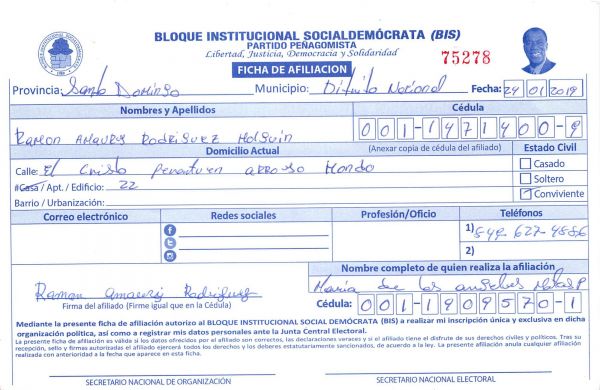 BLOQUE INSTITUCIONAL SOCIALDEMÓCRATA (BIS)
PARTIDO PEÑAGOMISTA
Libertad, Justicia, Democracia y Solidaridad
75278
FICHA DE AFILIACION
Provincia: Santo Domingo Municipio: Distrito Nacional Fecha: 24 01 2019
Nombres y Apellidos Cédula
Ramon Amaury Rodriguez Holguin 001-1471400-9
Domicilio Actual (Anexar copia de cédula del afiliado) Estado Civil
Calle: El Cristo arroyo Hondo Casado
#Casa / Apt. / Edificio: 22 Soltero
Barrio / Urbanización: Conviviente
Correo electrónico Redes sociales Profesión/Oficio Teléfonos
1) 849-627-4586
2)
Nombre completo de quien realiza la afiliación
Ramon Amaury Rodriguez Maria de los angeles
Firma del afiliado (Firme igual que en la Cédula) Cédula: 001-1909570-1
Mediante la presente ficha de afiliación autorizo al BLOQUE INSTITUCIONAL SOCIAL DEMÓCRATA (BIS) a realizar mi inscripción única y exclusiva en dicha
organización política, así como a registrar mis datos personales ante la Junta Central Electoral.
La presente ficha de afiliación es válida si los datos ofrecidos por el afiliado son correctos, las declaraciones veraces y si el afiliado tiene el disfrute de sus derechos civiles y políticos. Tras su
recepción, sello y firmas autorizadas el afiliado ejercerá todos los derechos y los deberes estatutariamente sancionados, de acuerdo a la ley. La presente afiliación anula cualquier afiliación
realizada con anterioridad a la fecha que aparece en esta ficha.
SECRETARIO NACIONAL DE ORGANIZACIÓN SECRETARIO NACIONAL ELECTORAL